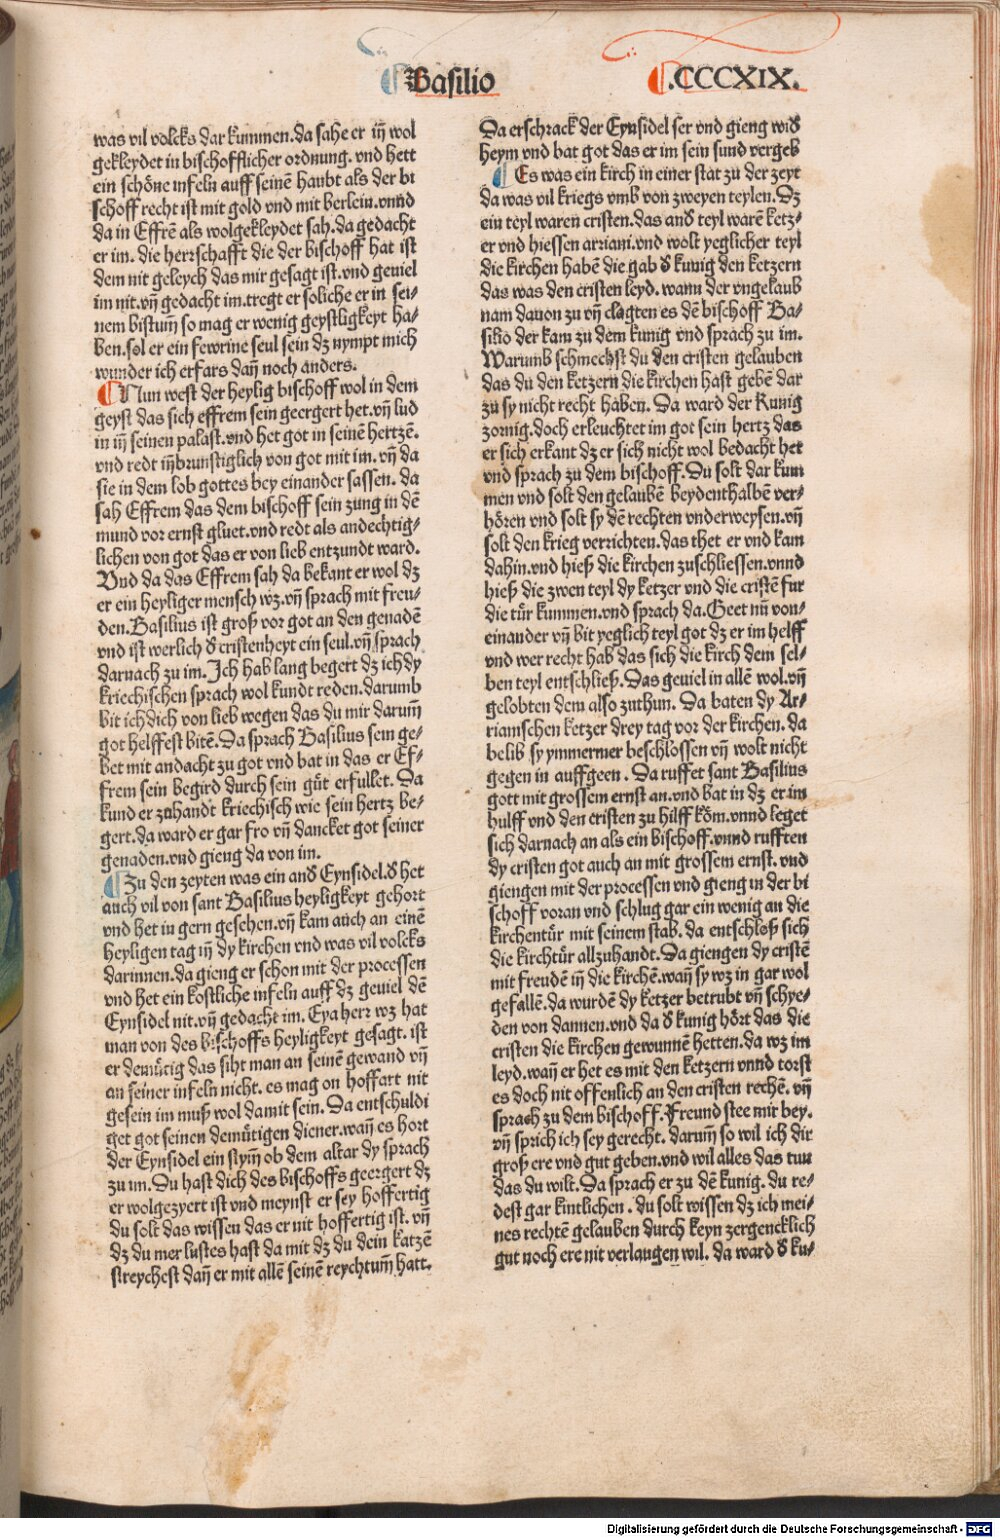 Basilio
.CCCXIX.
was vil volcks dar kummen.da sahe er iñ wol
gekleydet in bischofflicher ordnung. vnd hett
ein schöne infeln auff seinẽ haubt als der bi
schoff recht ist mit gold vnd mit berlein.vnnd
da in Effrẽ als wolgekleydet sah.da gedacht
er im. die herrschafft die der bischoff hat ist
dem nit geleych das mir gesagt ist.vnd geuiel
im nit.vñ gedacht im.tregt er soliche er in sei⸗
nem bistum̃ so mag er wenig geystligkeyt ha⸗
ben.sol er ein fewrine seul sein dz nympt mich
wunder ich erfars dañ noch anders.
Nun west der heylig bischoff wol in dem
geyst das sich effrem sein geergert het.vñ lud
in iñ seinen palast.vnd het got in seinẽ hertzẽ.
vnd redt iñbrunstiglich von got mit im. vñ da
sie in dem lob gottes bey einander sassen. da
sah Effrem das dem bischoff sein zung in dẽ
mund vor ernst gluet.vnd redt als andechtig⸗
lichen von got das er von lieb entzundt ward.
Vnd da das Effrem sah da bekant er wol dz
er ein heyliger mensch wz.vñ sprach mit freu⸗
den.Basilius ist groß vor got an den genadẽ
vnd ist werlich ð cristenheyt ein seul.vñ sprach
darnach zu im. Ich hab lang begert dz ich dy
kriechischen sprach wol kundt reden.darumb
bit ich dich von lieb wegen das du mir darum̃
got helffest bitẽ.Da sprach Basilius sein ge⸗
bet mit andacht zu got vnd bat in das er Ef⸗
frem sein begird durch sein güt erfullet. Da
kund er zuhandt kriechisch wie sein hertz be⸗
gert.da ward er gar fro vñ dancket got seiner
genaden.vnd gieng da von im.
Zu den zeyten was ein and̕ Eynsidel.ð het
auch vil von sant Basilius heyligkeyt gehort
vnd het in gern gesehen.vñ kam auch an einẽ
heyligen tag iñ dy kirchen vnd was vil volcks
darinnen.da gieng er schon mit der processen
vnd het ein kostliche infeln auff dz geuiel dẽ
Eynsidel nit.vñ gedacht im. Eya herr wz hat
man von des bischoffs heyligkeyt gesagt. ist
er demütig das siht man an seinẽ gewand vñ
an seiner infeln nicht. es mag on hoffart nit
gesein im muß wol damit sein. Da entschuldi
get got seinen demütigen diener.wañ es hort
der Eynsidel ein stym̃ ob dem altar dy sprach
zu im.Du hast dich des bischoffs geergert dz
er wolgezyert ist vnd meynst er sey hoffertig
du solt das wissen das er nit hoffertig ist. vñ
dz du mer lustes hast da mit dz du dein katzẽ
streychest dañ er mit allẽ seinẽ reychtum̃ hatt.
Da erschrack der Eynsidel ser vnd gieng wid̕
heym vnd bat got das er im sein sund vergeb
Es was ein kirch in einer stat zu der zeyt
da was vil kriegs vmb von zweyen teylen. Dz
ein teyl waren cristen.das and̕ teyl warẽ ketz⸗
er vnd hiessen arriani.vnd wolt yeglicher teyl
die kirchen habẽ die gab ð kunig den ketzern
das was den cristen leyd. wann der vngelaub
nam dauon zu vñ clagten es dẽ bischoff Ba⸗
silio der kam zu dem kunig vnd sprach zu im.
Warumb schmechst du den cristen gelauben
das du den ketzern die kirchen hast gebẽ dar
zu sy nicht recht haben. Da ward der Kunig
zornig.doch erleuchtet im got sein hertz das
er sich erkant dz er sich nicht wol bedacht het
vnd sprach zu dem bischoff.Du solt dar kum
men vnd solt den gelaubẽ beydenthalbẽ ver⸗
hören vnd solt sy dẽ rechten vnderweysen.vñ
solt den krieg verrichten.das thet er vnd kam
dahin.vnd hieß die kirchen zuschliessen.vnnd
hieß die zwen teyl dy ketzer vnd die cristẽ fur
die tür kummen.vnd sprach da.Geet nũ von⸗
einander vñ bit yeglich teyl got dz er im helff
vnd wer recht hab das sich die kirch dem sel⸗
ben teyl entschließ.Das geuiel in allẽ wol.vñ
gelobten dem also zuthun. Da baten dy Ar⸗
rianischen ketzer drey tag vor der kirchen. da
belib sy ymmermer beschlossen vñ wolt nicht
gegen in auffgeen. Da ruffet sant Basilius
gott mit grossem ernst an.vnd bat in dz er im
hulff vnd den cristen zu hilff köm.vnnd leget
sich darnach an als ein bischoff.vnnd rufften
dy cristen got auch an mit grossem ernst. vnd
giengen mit der processen vnd gieng in der bi
schoff voran vnd schlug gar ein wenig an die
kirchentür mit seinem stab. da entschloß sich
die kirchtür allzuhandt.Da giengen dy cristẽ
mit freudẽ iñ die kirchẽ.wañ sy wz in gar wol
gefallẽ.da wurdẽ dy ketzer betrubt vñ schye⸗
den von dannen.vnd da ð kunig hört das die
cristen die kirchen gewunnẽ hetten.da wz im
leyd.wañ er het es mit den ketzern vnnd torst
es doch nit offenlich an den cristen rechẽ. vñ
sprach zu dem bischoff.Freund stee mir bey.
vñ sprich ich sey gerecht. darum̃ so wil ich dir
groß ere vnd gut geben.vnd wil alles das tun
das du wilt.Da sprach er zu dẽ kunig. du re⸗
dest gar kintlichen. du solt wissen dz ich mei⸗
nes rechtẽ gelauben durch keyn zergencklich
gut noch ere nit verlaugen wil. da ward ð ku⸗
Digitalisierung gefördert durch die Deutsche Forschungsgemeinschaft - DFG